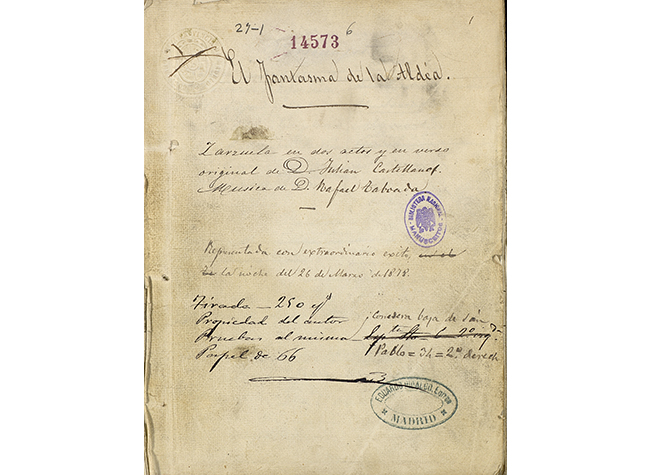 27-1
14573
6
1
El Fantasma de la Aldéa.
Zarzuela en dos actos y en verso
original de D. Julian Castellanos.
Musica de D. Rafael Taboada
BIBLIOTECA NACIONAL
MANUSCRITOS
Representada con extraordinario exito,
la noche del 26 de Marzo de 1878.
Tirada — 250 ejs
Propiedad del autor
Pruebas al mismo
Papel de 66
Corredera baja de San
Pablo = 34 = 2º derech
EDUARDO HIDALGO, Editor
MADRID